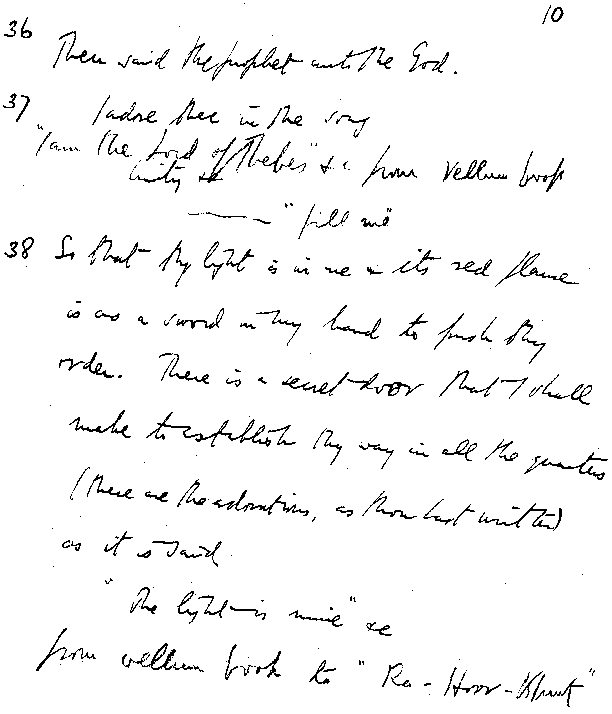 10
36 Then said the prophet unto the God.
37 I adore thee in the song
"I am the Lord of Thebes" &c from vellum book
Unity &c
——— "fill me"
38 So that thy light is in me & its red flame
is as a sword in my hand to push thy
order. There is a secret door that I shall
make to establish thy way in all the quarters
(these are the adorations, as thou hast written)
as it is said
"The light is mine" &c
from vellum book to "Ra-Hoor-Khuit"